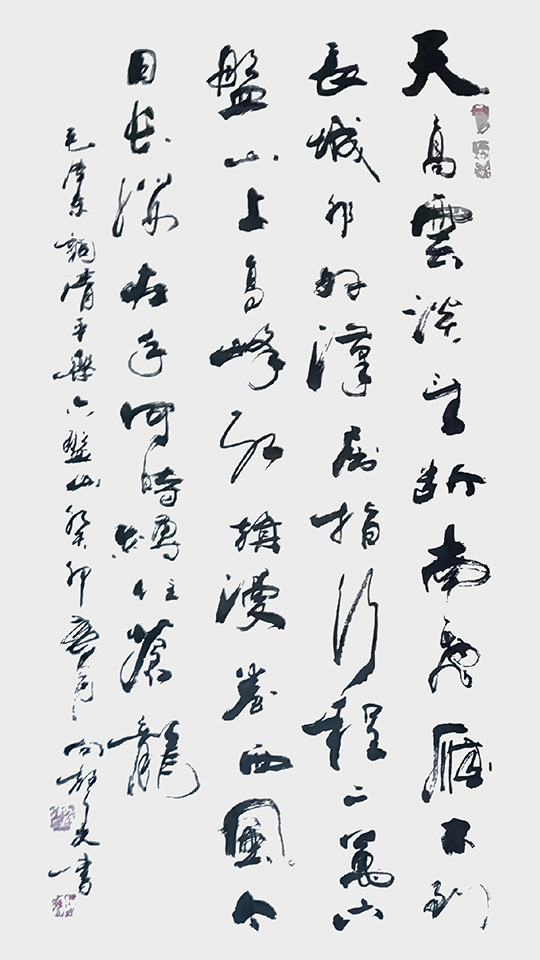 天高雲淡望斷南飛雁不到
長城非好漢屈指行程二萬六
盤山上高峰紅旗漫卷西風今
日長纓在手何時縛住蒼龍
毛澤東詞清平樂六盤山癸卯月書